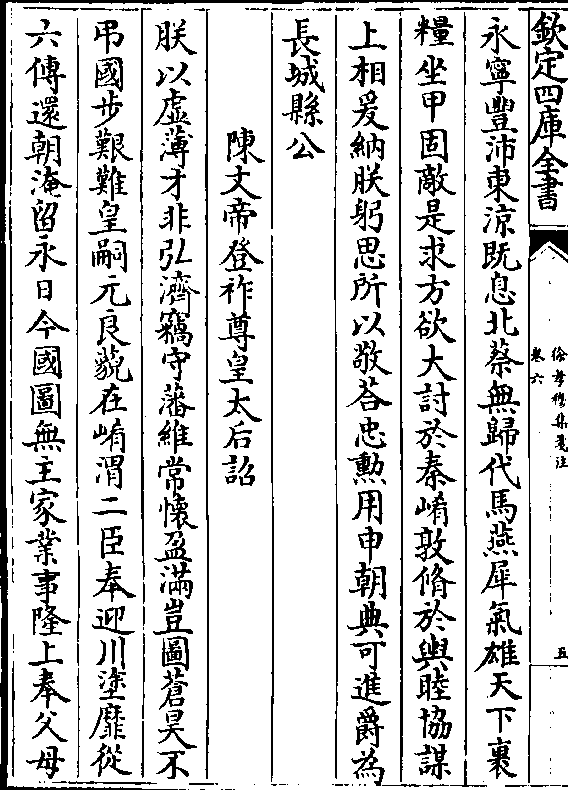 欽定四庫全書
徐孝穆集箋注
卷六
五
永寧豐沛東涼既息北蔡無歸代馬燕犀氣雄天下裹
糧坐甲固敵是求方欲大討於秦崤敦脩於輿睦協謀
上相爰納朕躬思所以敬荅忠勲用申朝典可進爵為
長城縣公
陳文帝登祚尊皇太后詔
朕以虚薄才非弘濟竊守藩維常懷盈滿豈圖蒼昊不
弔國步艱難皇嗣元良藐在崤渭二臣奉迎川塗靡從
六傳還朝淹留永日今國圖無主家業事隆上奉父母